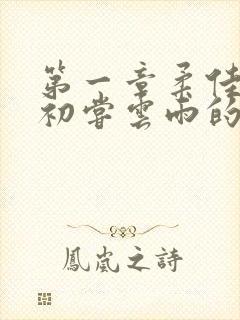 第一章柔佳
初嘗雲雨的
鳳嵐之詩